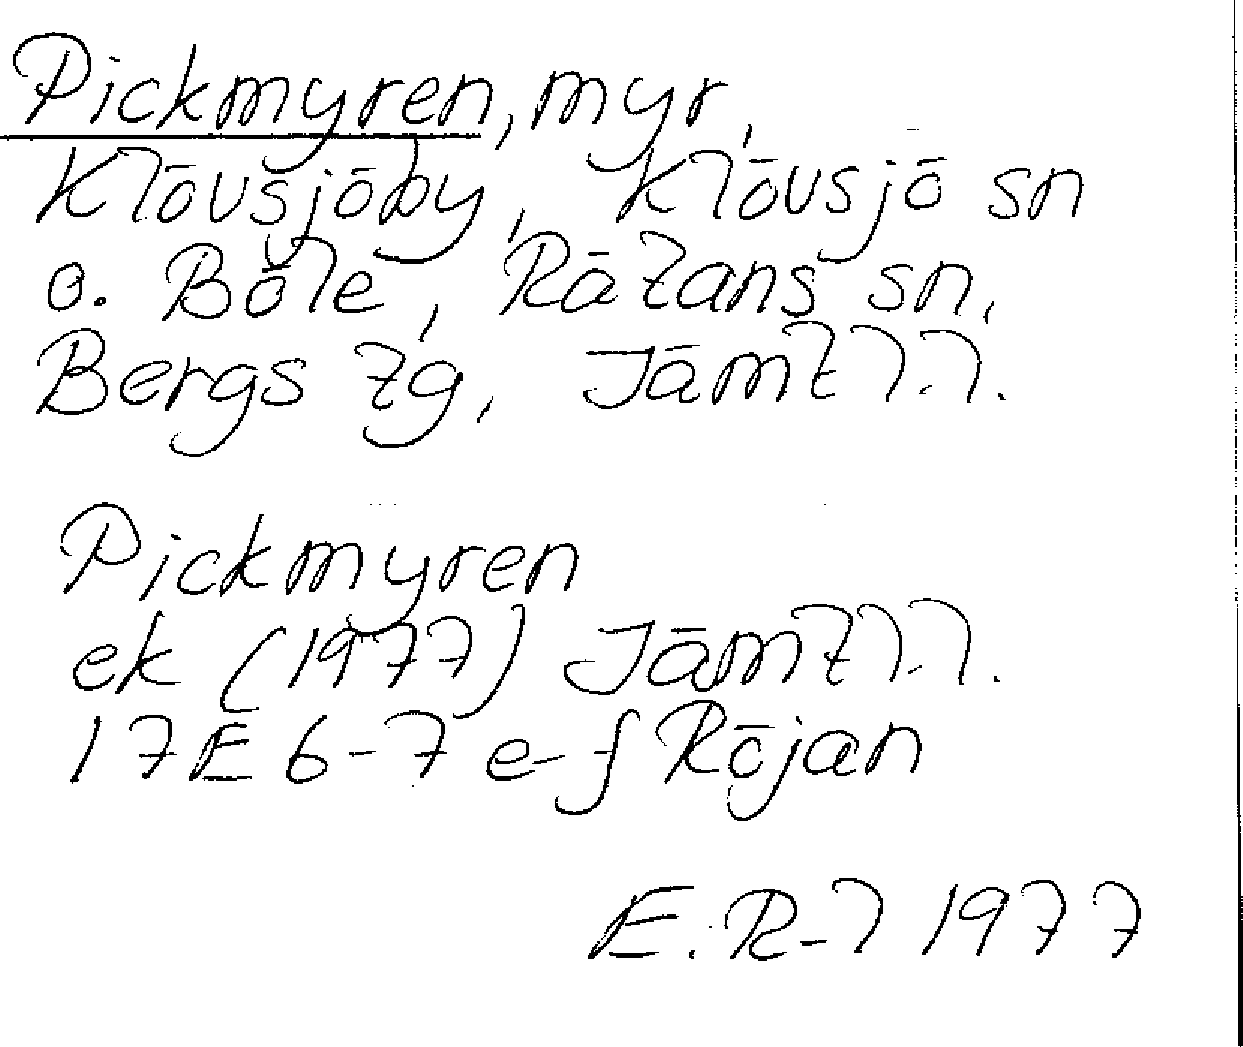 Pickmyren, myr,
Klövsjöby, Klövsjö sn
o. Böle, Rätans sn,
Bergs tg, Jämtl.l.
Pickmyren
ek (1977) Jämtl.l.
17E 6-7 e-f Röjan
E. R-l 1977